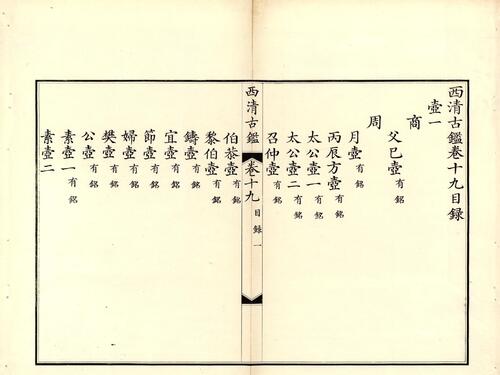 西清古鑑卷十九目録
壺一
商
父巳壺有銘
周
月壺有銘
丙辰方壺有銘
太公壺一有銘
太公壺二有銘
召仲壺有銘
西清古鑑 卷十九 目録 一
伯恭壺有銘
黎伯壺有銘
鑄壺有銘
宜壺有銘
節壺有銘
婦壺有銘
樊壺有銘
公壺有銘
素壺一有銘
素壺二